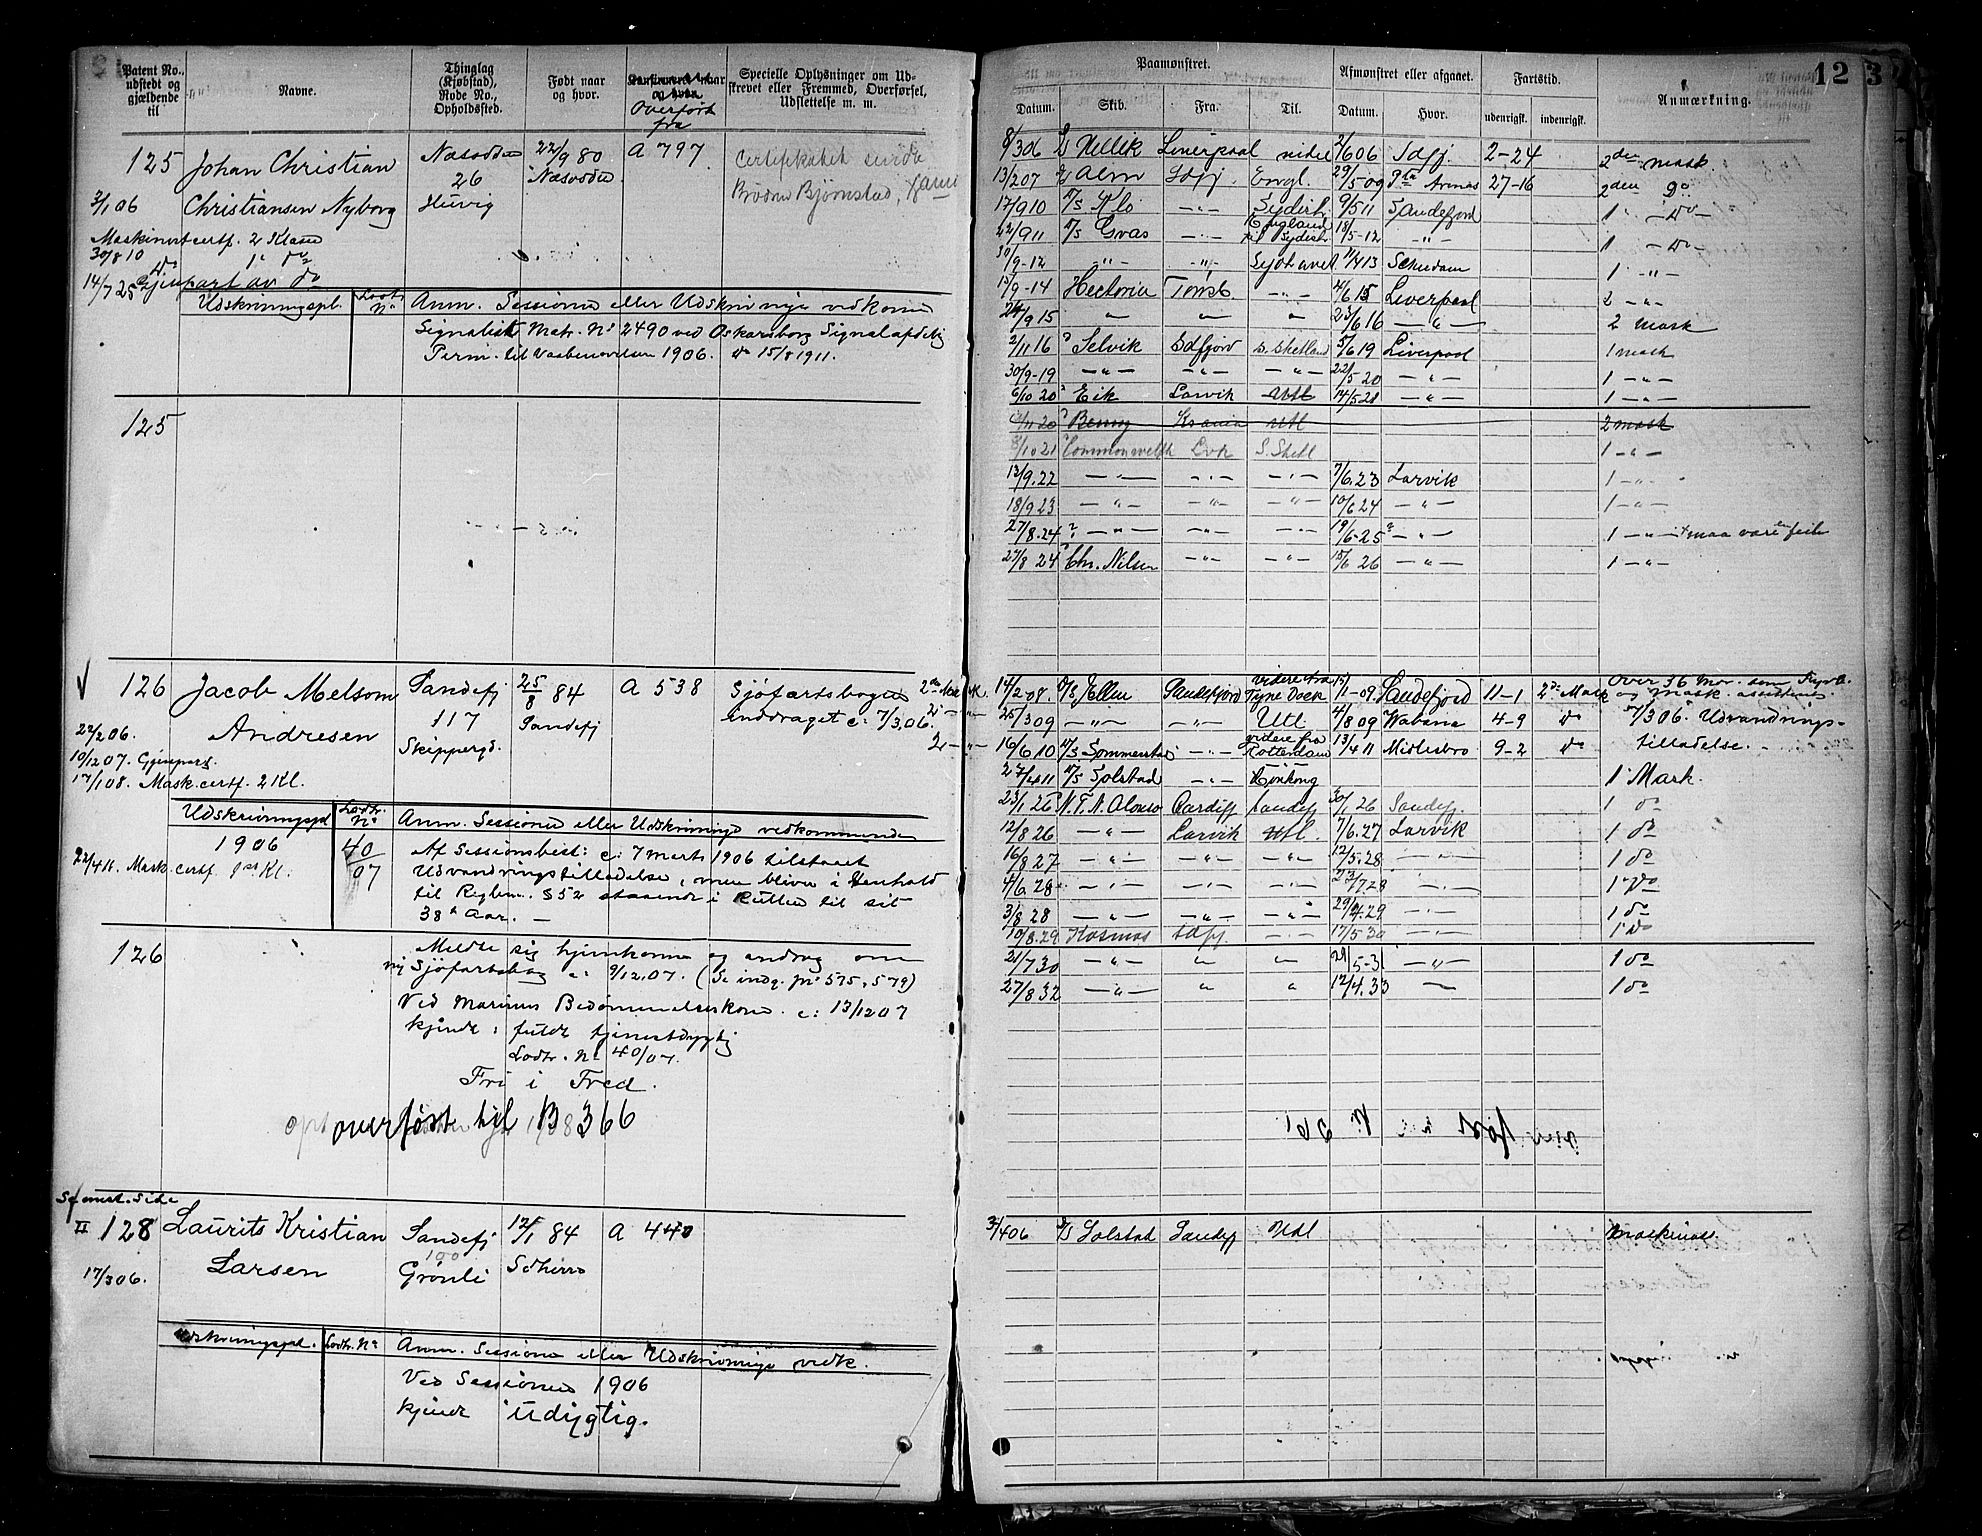 Patent No., udstedt og gjældende til
Navne.
Thinglag (Kjøbstad), Rode No., Opholdssted.
Født naar og hvor.
Overført fra
Specielle Oplysninger om Udskrevet eller Fremmed, Overførsel, Udslettelse m. m.
125 Johan Christian Næsodden 22/9 80 A 797
3/1 06 Christiansen Nyborg 26 Næsodden
Maskinistcertf. 2 Klasse
30/8 10 do 1ste do
14/7 25 Gjenpart av do
Udskrivningspl. Lodtr. No Anm. Sessioner eller Udskrivninge vedkomm.
Signalist Matr. No 2490 ved Oskarsborg Signalafdeling
Perm. til Vaabenøvelsen 1906. do 15/8 1911.
125
126 Jacob Melsom Sandefj 25/8 84 A 538 Sjøfartsbogen
Andresen 117 Sandefj inddraget c: 7/3 06.
22/2 06. Skippergd.
10/12 07. Gjenpart.
17/1 08. Mask. certf. 2 Kl.
Udskrivningspl Lodtr. No Anm. Sessioner eller Udskrivninge vedkommende
1906 40/07 Af Sessionsbest: c: 7 Marts 1906 tilstaaet
22/4 11. Mask. certf. 1st Kl. Udvandringstilladelse, men bliver i Henhold
til Reglem. § 52 staaende i Rullen til sit
38te Aar. —
126 Meldte sig hjemkomne og androg om
ny Sjøfartsbog c: 9/12.07. (Se indg. No 575, 579)
Ved Marinens Bedømmelseskom. c: 13/12 07
kjendt: fuldt tjenestdygtig
Lodtr. No 40/07.
Fri i Fred.
overført til B 366
Se omst. Side
II 128 Laurits Kristian Sandefj 12/1 84 A 440
17/3 06. Larsen 100
Grønli
Udskrivningspl. Lodtr. No Anm. Sessioner eller Udskrivninge vedk.
Ved Sessionen 1906
kjendt Udygtig.
12 3
Paamønstret. Afmønstret eller afgaaet. Fartstid. Anmærkning.
Datum. Skib. Fra. Til. Datum. Hvor. udenrigsk. indenrigsk.
8/3 06 Liverpool 2/6 06 Sdfj. 2-24 2den mask
13/2 07 Alm Sdfj. Engl. 29/5 09 Pta Arenas 27-16 2den do
17/9 10 Klo — 9/5 11 Sandefjord 1 — do
22/9 11 Gvas — England 18/5-12 — 1 — do
30/9-12 — — Sydhavet 11/4 13 Schiedam 1 —
15/9-14 Hectoria Tønsb. — 4/6 15 Liverpool 2 —
24/9 15 — — — 23/6 16 — 2 mask
2/11 16 Selvik Sdfjord S. Shetland 5/6 19 Liverpool 1 mask
30/9-19 — — — 22/5-20 — 1 —
6/10 20 Eik Larvik Utl 14/5 21 — 1 —
Kr.ania Utl 2 mask
8/10 21 Commonwelth Lvk S. Shetl 1 —
13/9.22 — — — 7/6.23 Larvik 1 —
18/9 23 — — — 10/6 24 — 1 —
27/8.24 ? — — — 19/6-25 — 1 — maa være feil
27/8 24 Chr. Nilsen — — 15/6 26 — 1 —
14/2-08. Jellen Sandefjord videre fra Tyne Dock 15/1-09. Sandefjord 11-1 2den Mask Over 36 Mdr. som Fyrb. og Mask. assistent
25/3 09 — — Utl. 4/8 09 Wabana 4-9 do 7/3 06 Udvandrings-
16/6 10 Sommerstad — videre fra Rotterdam 13/4 11 Midlesbro 9-2 do tilladelse.
27/4 11 Solstad — Honkong 1ste Mark.
23/1 26 N. T. N. Alonso Cardiff Sandefj 30/1 26 Sandefj. 1 do
12/8 26 — Larvik Utl. 7/6.27 Larvik 1 do
16/8 27 — — — 12/5.28 — 1 do
4/6 28 — — — 23/7 28 — 1 do
3/8 28 — — — 29/4.29 — 1 do
10/8.29 Kosmos Sdfj — 17/5 30 — 1 do
21/7 30 — — — 21/5-31 — 1 do
27/8 32 — — — 12/4.33 — 1 do
3/4 06 Solstad Sandefj Utl Maskinass.